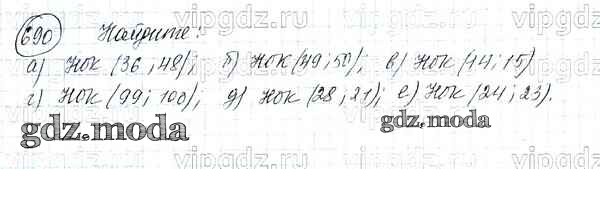 690 Найдите:
а) НОК (36; 48); б) НОК (49; 50); в) НОК (14; 15)
г) НОК (99; 100); д) НОК (28; 21); е) НОК (24; 23).
gdz.moda
gdz.moda
vipgdz
vipgdz
vipgdz
vipgdz
vipgdz
vipgdz